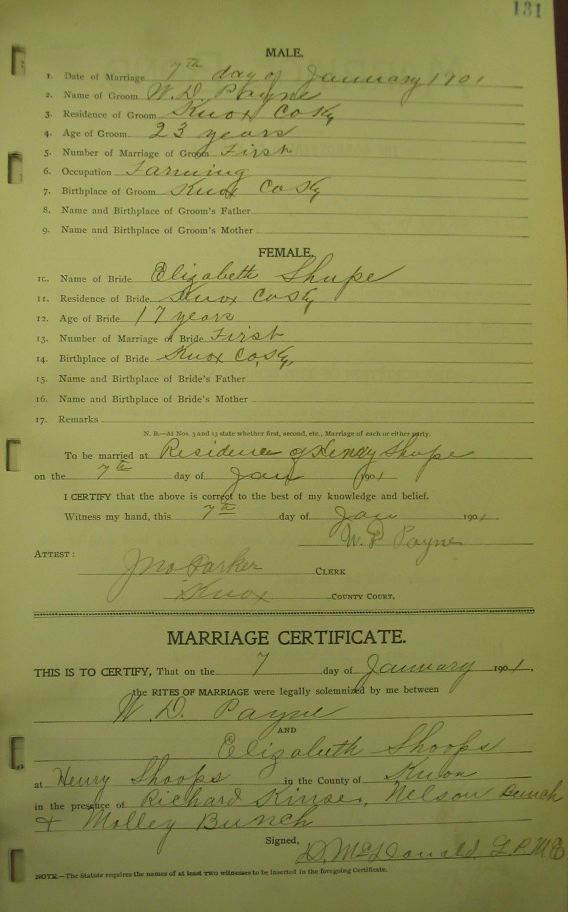 131
MALE.
1. Date of Marriage 7th day of January 1901
2. Name of Groom W. D. Payne
3. Residence of Groom Knox Co Ky
4. Age of Groom 23 years
5. Number of Marriage of Groom First
6. Occupation Farming
7. Birthplace of Groom Knox Co Ky
8. Name and Birthplace of Groom's Father
9. Name and Birthplace of Groom's Mother
FEMALE.
10. Name of Bride Elizabeth Shupe
11. Residence of Bride Knox Co Ky
12. Age of Bride 17 years
13. Number of Marriage of Bride First
14. Birthplace of Bride Knox Co, Ky,
15. Name and Birthplace of Bride's Father
16. Name and Birthplace of Bride's Mother
17. Remarks
N. B.—At Nos. 5 and 13 state whether first, second, etc., Marriage of each or either party.
To be married at Residence of Henry Shupe
on the 7th day of Jan 1901
I CERTIFY that the above is correct to the best of my knowledge and belief.
Witness my hand, this 7th day of Jan 1901
W. D Payne
ATTEST:
Jno Parker CLERK
Knox COUNTY COURT.
MARRIAGE CERTIFICATE.
THIS IS TO CERTIFY, That on the 7 day of January 1901.
the RITES OF MARRIAGE were legally solemnized by me between
W. D. Payne
AND
Elizabeth Shoops
at Henry Shoops in the County of Knox
in the presence of Richard Kinser, Nelson Bunch
& Molley Bunch
Signed,
D, McDonald,
NOTE.—The Statute requires the names of at least two witnesses to be inserted in the foregoing Certificate.